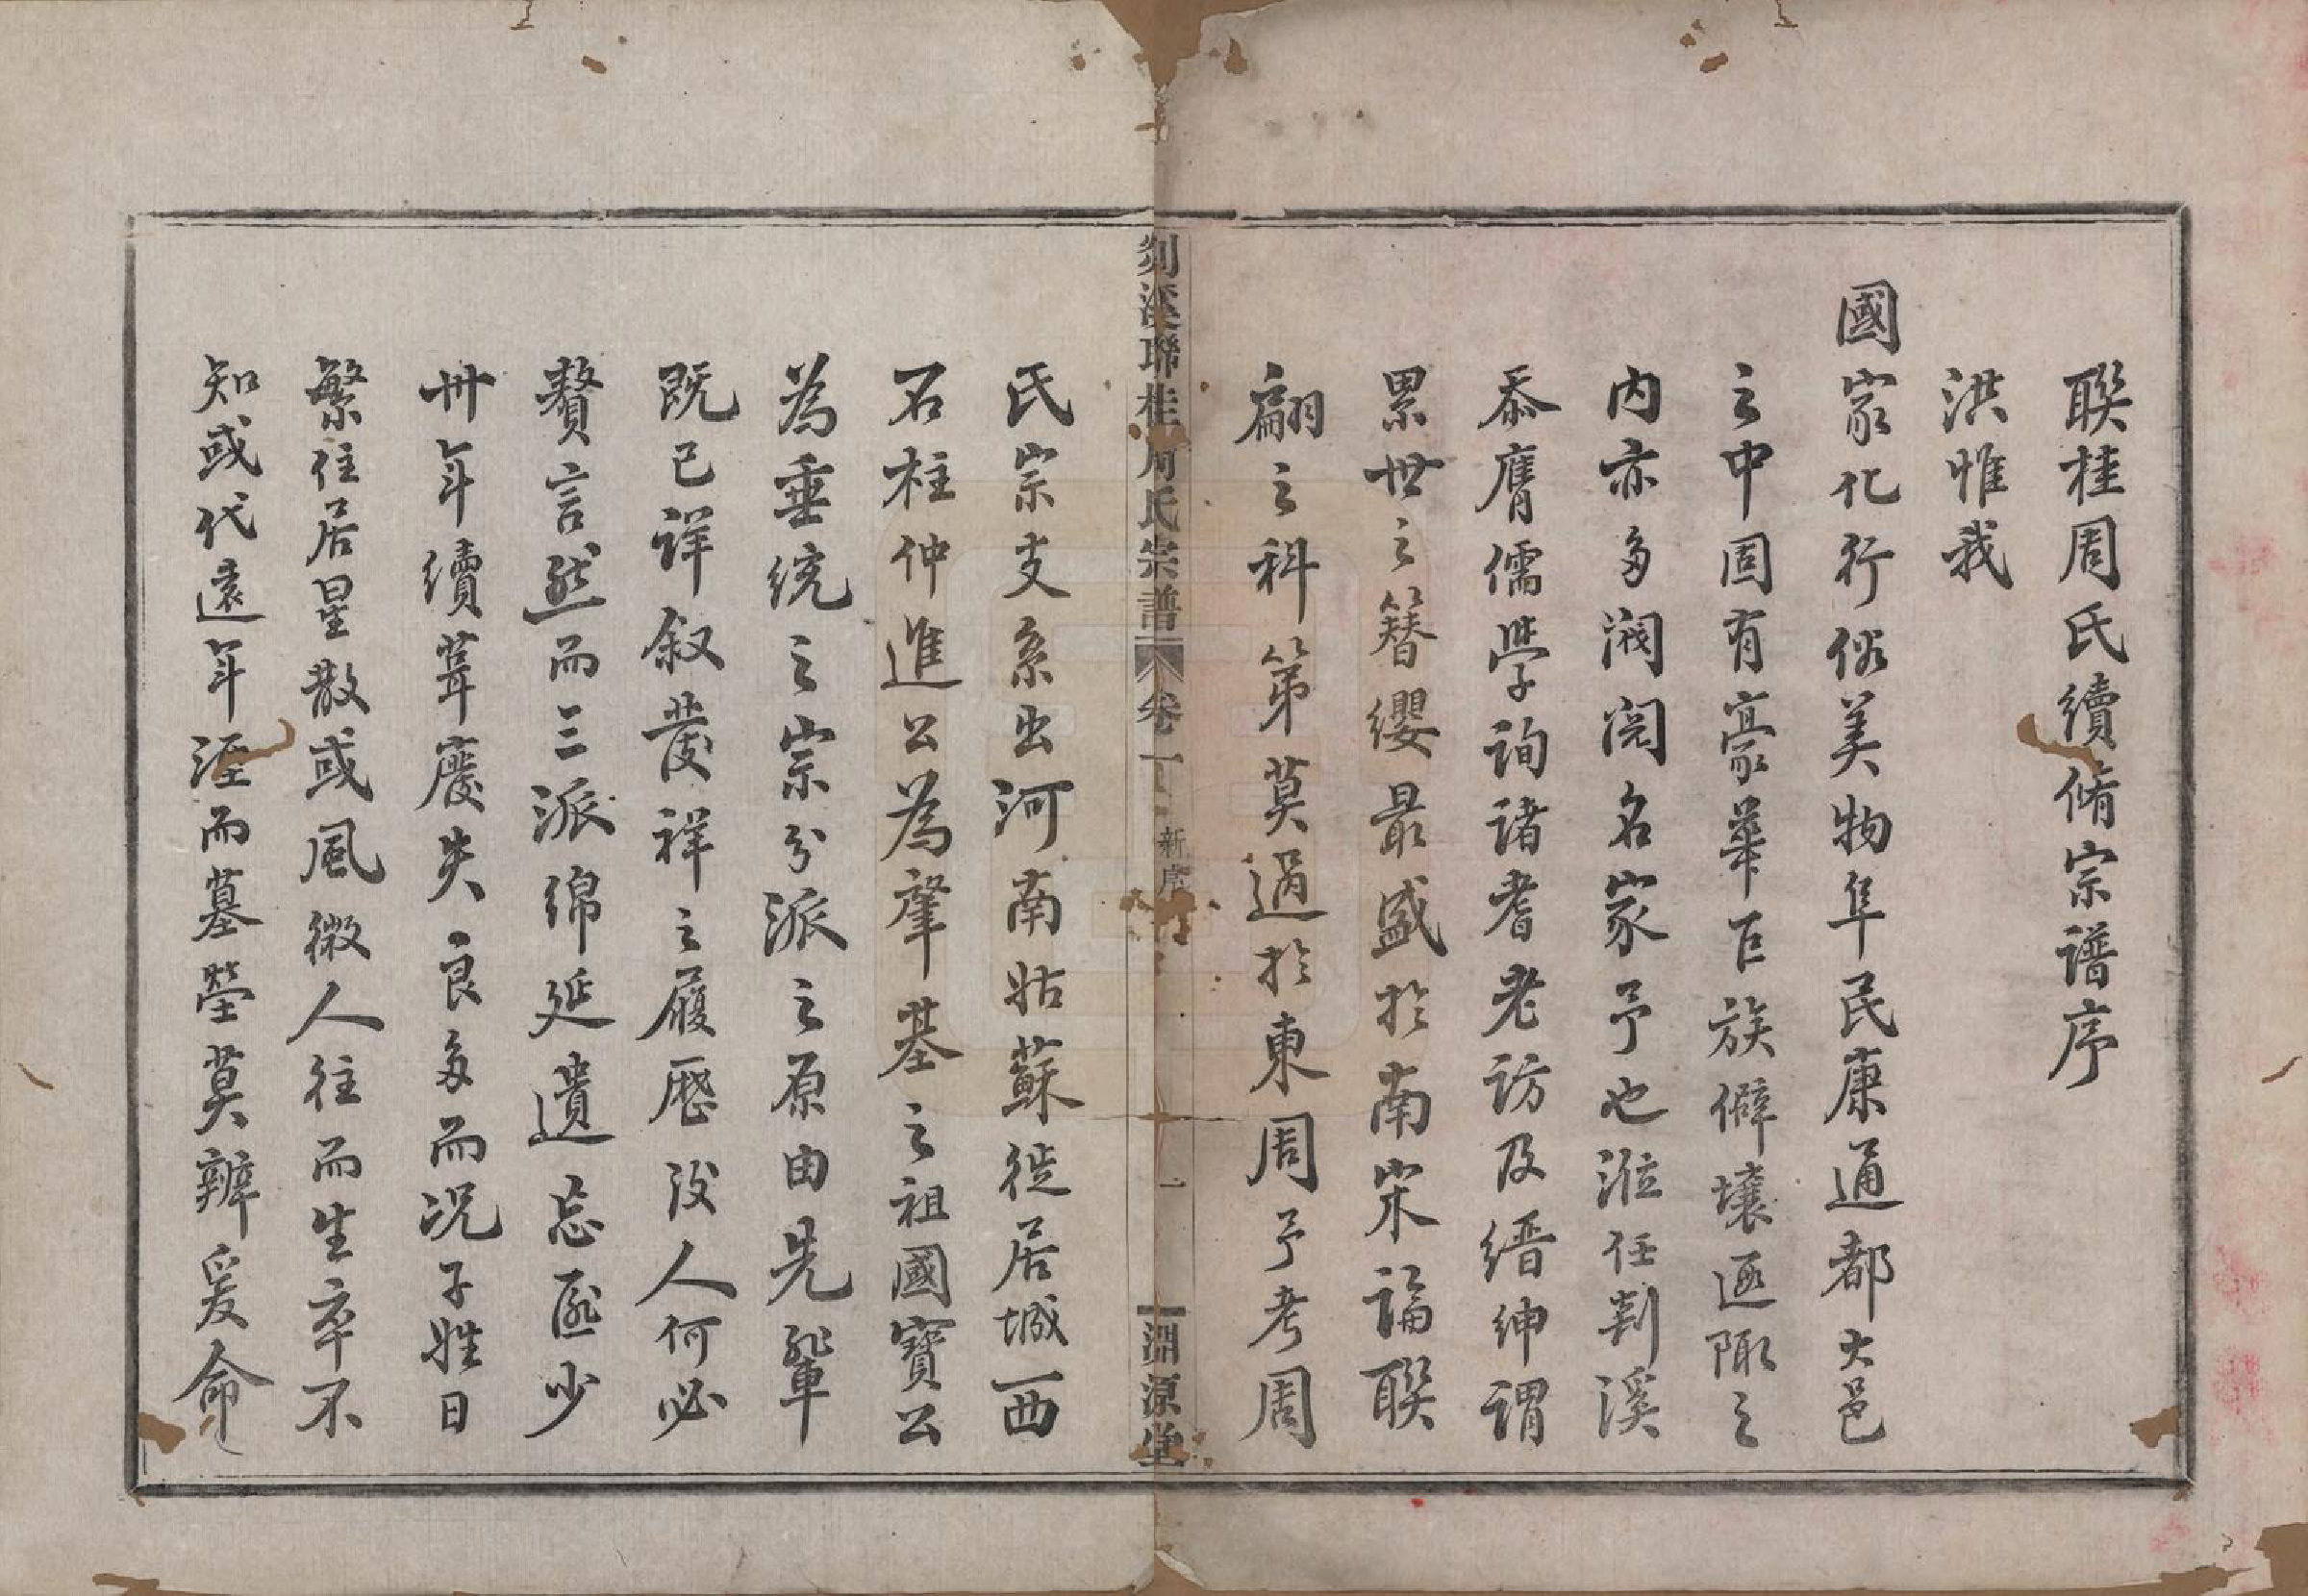 聯桂周氏續脩宗譜序
洪惟我
國家化行俗美物阜民康通都大邑
之中固有豪華巨族僻壤遐陬之
内亦多閥閱名家予也涖任剡溪
忝膺儒學詢諸耆老訪及縉紳謂
累世之簪纓最盛於南宋論聯
翩之科第莫過於東周予考周
剡溪聯桂周氏宗譜 卷一 新序 一 淵源堂
氏宗支系出河南姑蘇徙居城西
石柱仲進公為肇基之祖國寶公
為垂統之宗分派之原由先輩
既已詳叙發祥之履歷後人何必
贅言然而三派綿延遺忘匪少
卅年續葺廢失良多而况子姓日
繁住居星散或風微人往而生卒不
知或代遠年湮而墓塋莫辨爰命